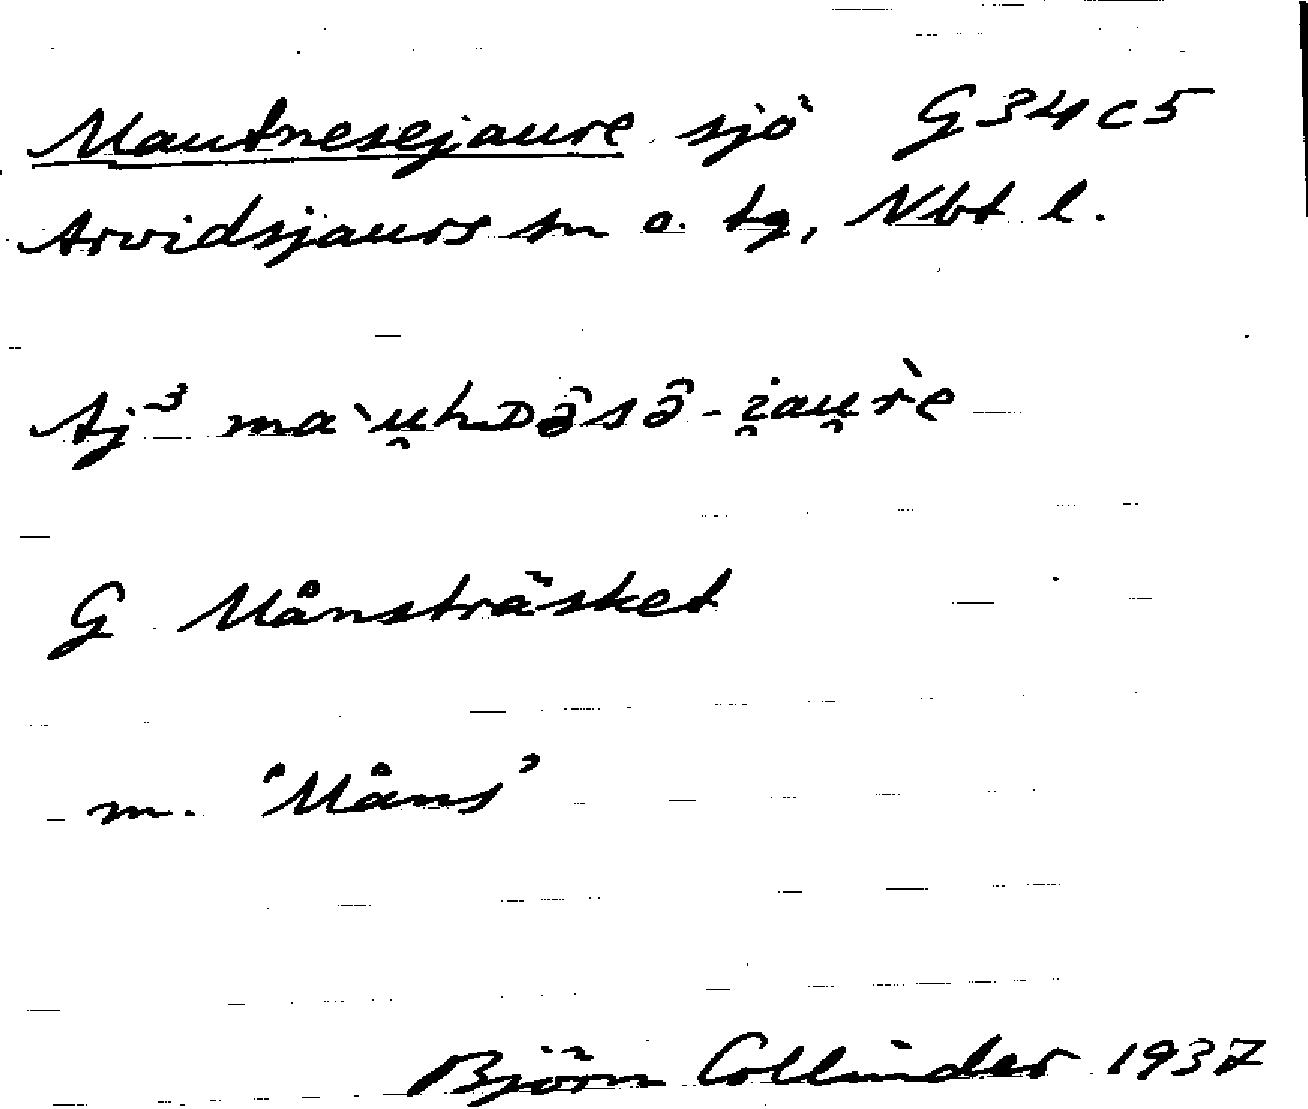 Mautnesejaure sjö G34c5
Arvidsjaurs sn o. tg, Nbt l.
Aj³ ma`u̯hᴅə̑sə̑-i̯au̯r̀e
G Månsträsket
m. 'Måns'
Björn Collinder 1937